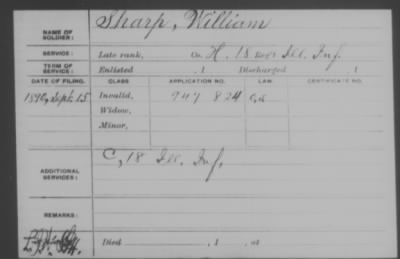 NAME OF SOLDIER: Sharp, William
SERVICE: Late rank, Co. H, 18 Reg't Ill. Inf.
TERM OF SERVICE: Enlisted , 1 Discharged 1
DATE OF FILING. CLASS. APPLICATION NO. LAW. CERTIFICATE NO.
1890, Sept. 15 Invalid, 947 824
Widow,
Minor,
ADDITIONAL SERVICES: C, 18 Ill. Inf.
REMARKS:
Died , 1 , at